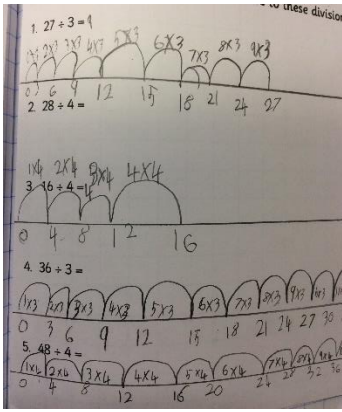 to these division
1. 27 ÷ 3 = 9
1x3 2x3 3x3 4x3 5x3 6x3 7x3 8x3 9x3
0 3 6 9 12 15 18 21 24 27
2. 28 ÷ 4 =
1x4 2x4 3x4 4x4
3. 16 ÷ 4 = 4
0 4 8 12 16
4. 36 ÷ 3 =
1x3 2x3 3x3 4x3 5x3 6x3 7x3 8x3 9x3
0 3 6 9 12 15 18 21 24 27 30
5. 48 ÷ 4 =
1x4 2x4 3x4 4x4 5x4 6x4 7x4 8x4 9x4
0 4 8 12 16 20 24 28 32 36